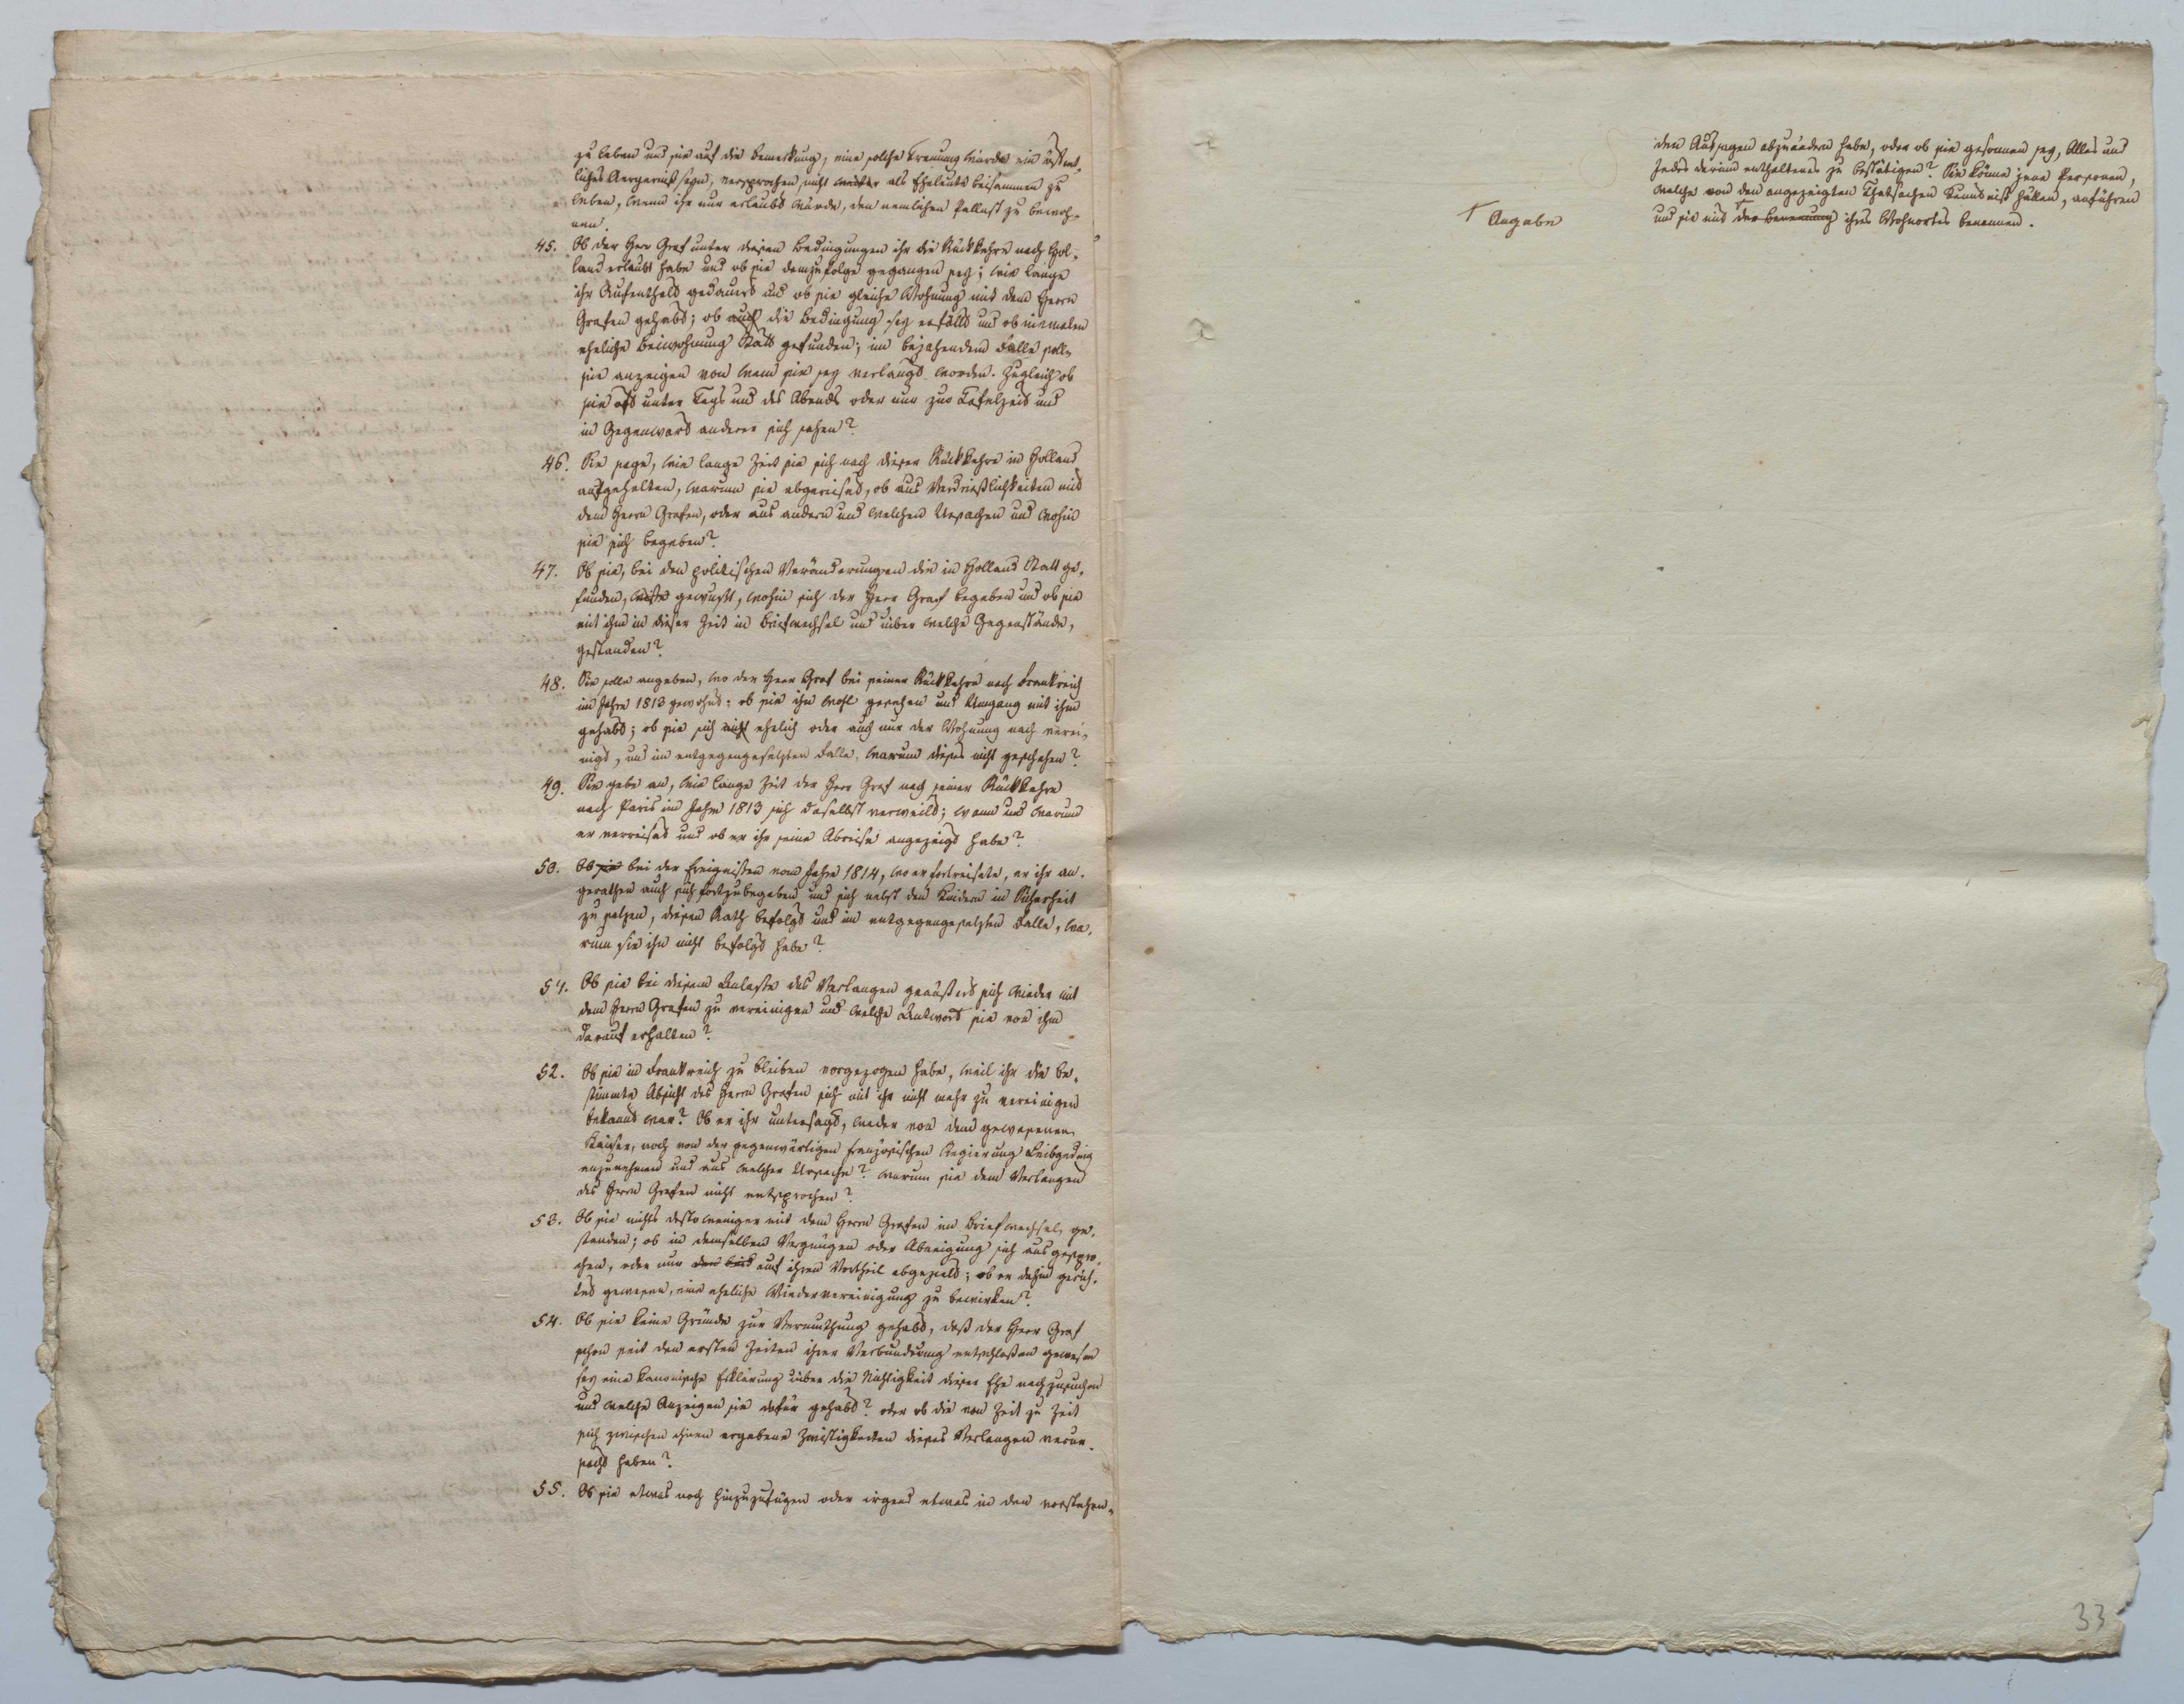 zu leben und sie auf die Bemerkung, eine solche Trennung würde ein öffent-
liches Aergerniß seyn, versprochen, nicht weiter als Eheleute beisammen zu
leben, wenn ihr nur erlaubt würde, den nemlichen Pallast zu bewoh-
nen.
45. Ob der Herr Graf unter diesen Bedingungen ihr die Rückkehre nach Hol-
land erlaubt habe und ob sie demzufolge gegangen sey; wie lange
ihr Aufenthalt gedauert und ob sie gleiche Wohnung mit dem Herrn
Grafen gehabt; ob auch die Bedingung sey erfüllt und ob niemalen
eheliche Beiwohnung Statt gefunden; im bejahendem Falle soll-
sie anzeigen von wem sie sey verlangt worden. Zugleich ob
sie oft unter Tags und des Abends oder nur zur Tafelzeit und
in Gegenwart anderer sich sahen?
46. Sie sage, wie lange Zeit sie sich nach dieser Rückkehre in Holland
aufgehalten, warum sie abgereiset, ob aus Verdrießlichkeiten mit
dem Herrn Grafen, oder aus andern und welchen Ursachen und wohin
sie sich begeben?
47. Ob sie, bei den politischen Veränderungen die in Holland Statt ge-
funden, gewußt, wohin sich der Herr Graf begeben und ob sie
mit ihm in dieser Zeit in Briefwechsel und über welche Gegenstände,
gestanden?
48. Sie solle angeben, wo der Herr Graf bei seiner Rückkehre nach Frankreich
im Jahre 1813 gewohnt; ob sie ihn wohl gesehen und Umgang mit ihm
gehabt; ob sie sich nicht ehelich oder auch nur der Wohnung nach verei-
nigt, und im entgegengesetzten Falle, warum dieses nicht geschehen?
49. Sie gebe an, wie lange Zeit der Herr Graf nach seiner Rückkehre
nach Paris im Jahre 1813 sich daselbst verweilt; wann und warum
er verreiset und ob er ihr seine Abreise angezeigt habe?
50. Ob sie bei den Ereignissen vom Jahre 1814, wo er fortreisete, er ihr an-
gerathen auch sich fortzubegeben und sich nebst den Kindern in Sicherheit
zu setzen, diesen Rath befolgt und im entgegengesetzten Falle, wa-
rum sie ihn nicht befolgt habe?
51. Ob sie bei diesem Anlaße das Verlangen geäußert sich wieder mit
dem Herrn Grafen zu vereinigen und welche Antwort sie von ihm
darauf erhalten?
52. Ob sie in Frankreich zu bleiben vorgezogen habe, weil ihr die be-
stimmte Absicht des Herrn Grafen sich mit ihr nicht mehr zu vereinigen
bekannt war? Ob er ihr untersagt, weder von dem gewesenen
Kaiser, noch von der gegenwärtigen französischen Regierung Leibgeding
anzunehmen und aus welcher Ursache? warum sie dem Verlangen
des Herrn Grafen nicht entsprochen?
53. Ob sie nichts desto weniger mit dem Herrn Grafen im Briefwechsel ge-
standen; ob in demselben Vergnügen oder Abneigung sich ausgespro-
chen, oder nur auf ihren Vortheil abgezielt; ob er dahin gerich-
tet gewesen, eine eheliche Wiedervereinigung zu bewirken?
54. Ob sie keine Gründe zur Vermuthung gehabt, daß der Herr Graf
schon seit den ersten Zeiten ihrer Verbindung entschlossen gewesen
sey eine kanonische Erklärung über die Nichtigkeit dieser Ehe nachzusuchen
und welche Anzeigen sie dafür gehabt? oder ob die von Zeit zu Zeit
sich zwischen ihnen ergebene Zwistigkeiten dieses Verlangen verur-
sacht haben?
55. Ob sie etwas noch hinzuzufügen oder irgend etwas in den vorstehen-
den Aussagen abzuändern habe, oder ob sie gesonnen sey, Alles und
Jedes darinn enthaltenes zu bestätigen? Sie könne jene Personen,
welche von den angezeigten Thatsachen Kenntniß hätten, anführen
und sie mit der Benennung ihres Wohnortes benennen.
Angabe
33